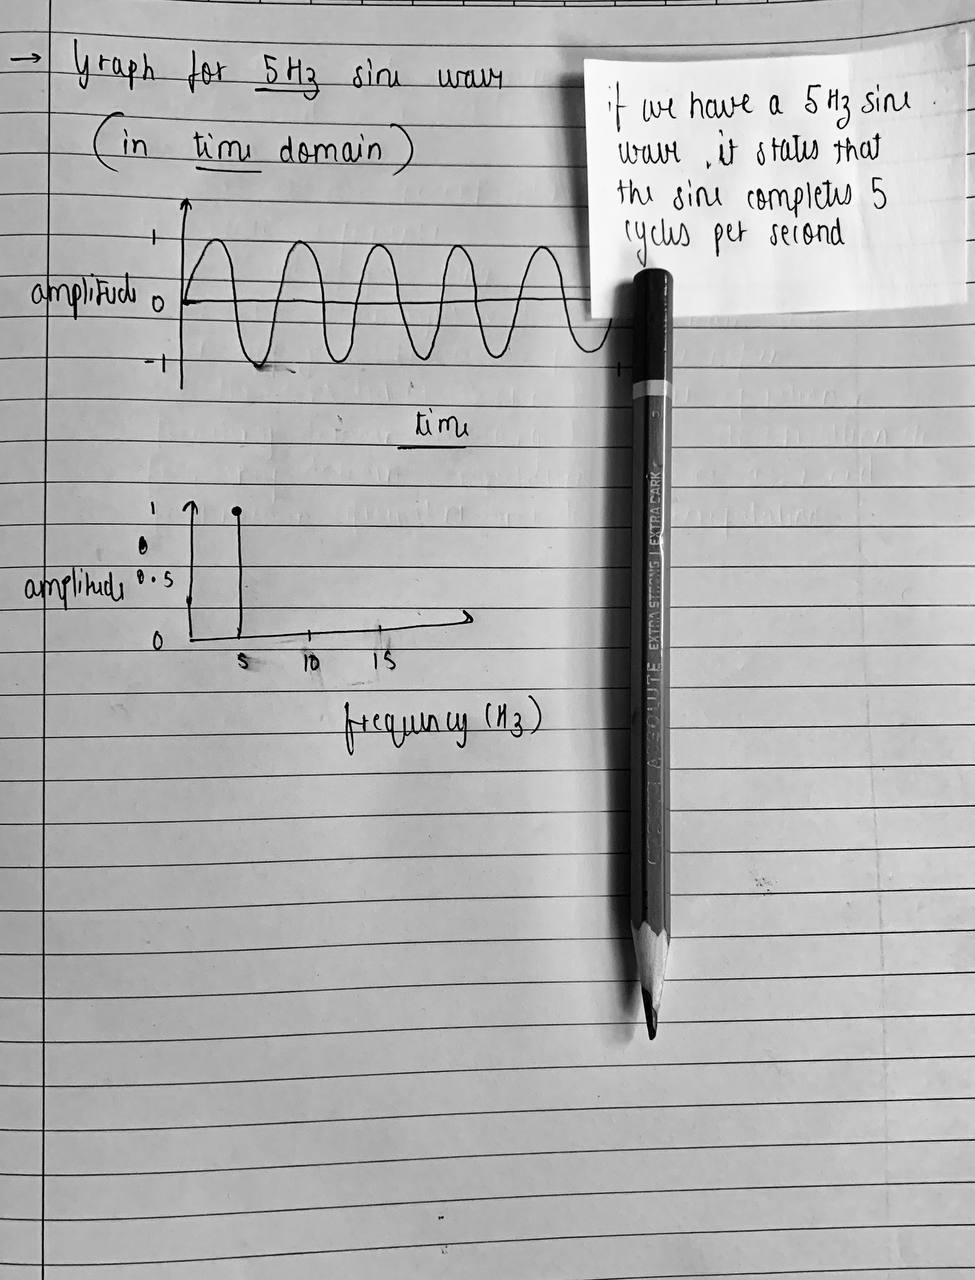 → Graph for 5Hz sine wave
(in time domain)
if we have a 5Hz sine
wave, it states that
the sine completes 5
cycles per second
1
amplitude 0
-1
1
time
1
amplitude 0.5
0
5 10 15
frequency (Hz)
ABSOLUTE EXTRA STRONG | EXTRA DARK